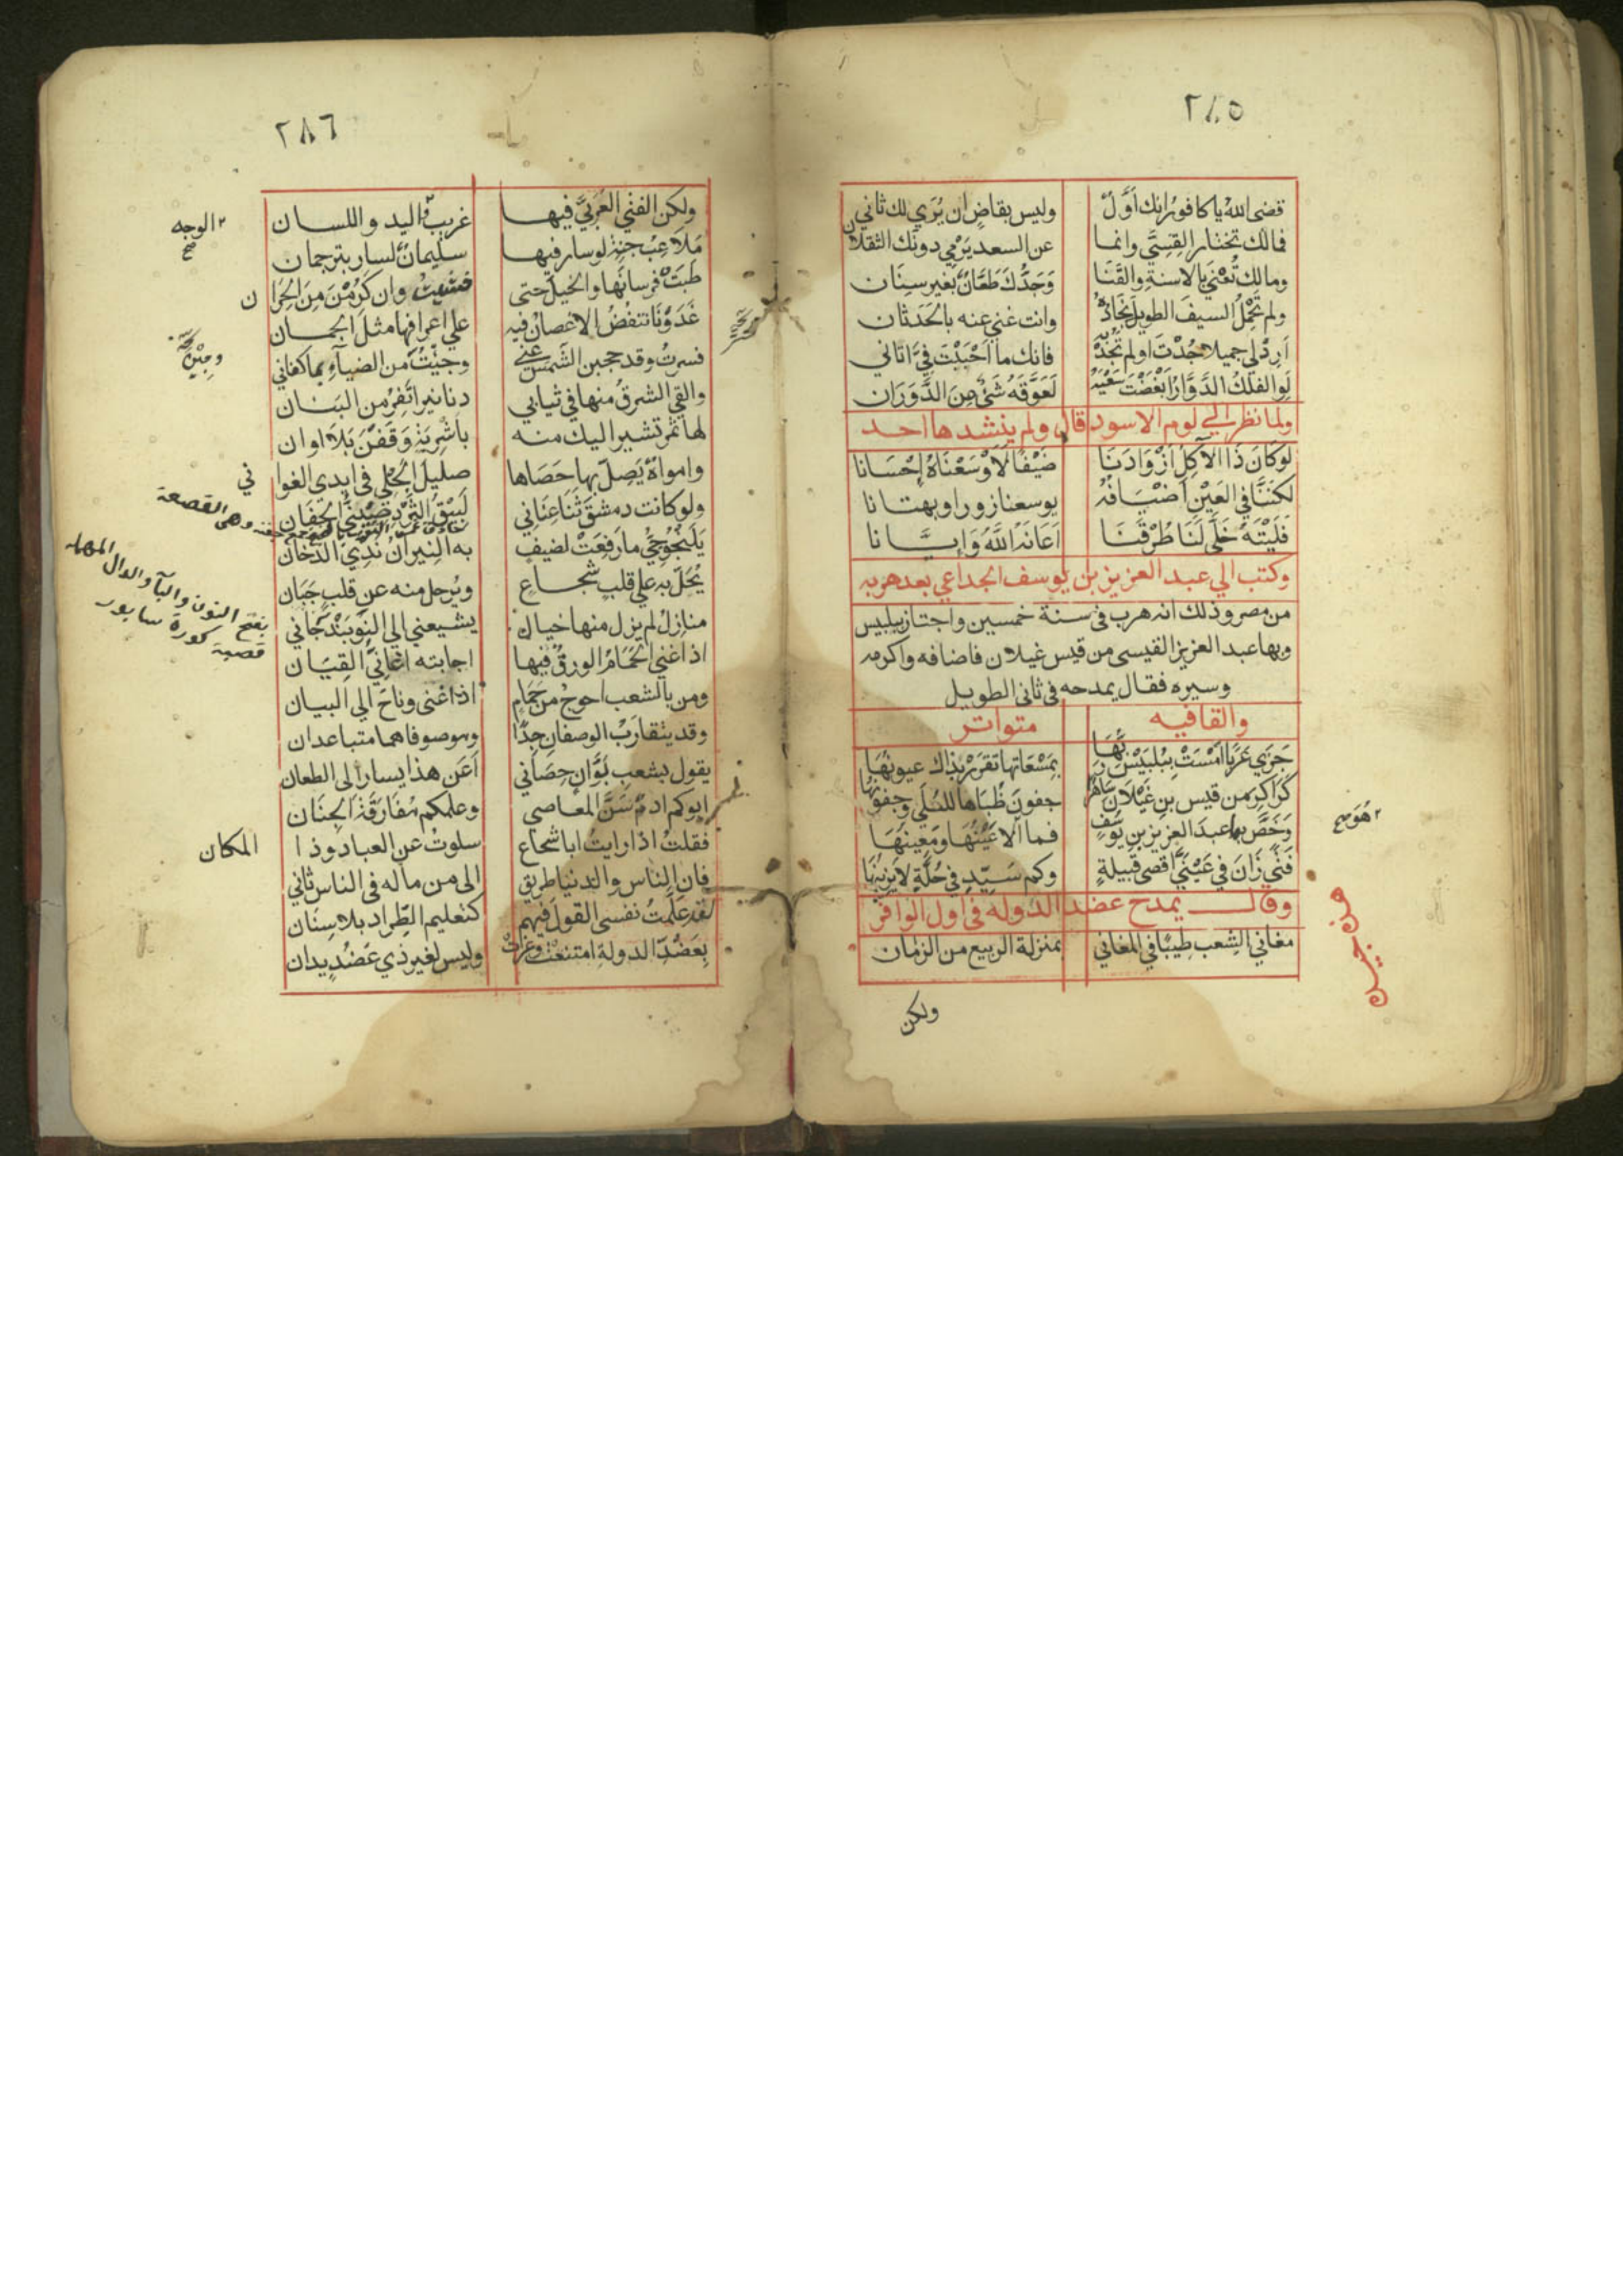 ٢٨٥
قضى الله يا كافور انك اَوَّلٌ وليس بقاضٍ ان يُرَي لك ثاني
فمالك تختار القِسِيَّ وانما عن السعد يَرْمي دونك الثقلان
ومالك تُعْنَي بالاسنةِ والقَنَا وَجَدُّكَ طَعَّانٌ بغير سِنَان
ولم تَحْمِلُ السيفَ الطويلَ نِجَادُهُ وانت غني عنه بالحَدَثان
اَرِدْ لي جميلا جُدْتَ او لم تَجُدْ بِهِ فانك ما اَحْبَبْتَ فيَّ اتاني
لَوِ الفلكُ الدَّوَّارُ اَبْغَضْتَ سَعْيَهُ لَعَوَّقَهُ شَيْءٌ مِنَ الدَّوَرَان
ولما نظر الي لوم الاسود قال ولم ينشدها احد
لَوْ كَانَ ذَا الآكِلُ اَزْوَادَنَا ضَيْفًا لَاَوْسَعْنَاهُ اِحْسَانا
لكننَّا في العَيْنِ اَضْيَافُهُ يوسعنا زورا وبهتانا
فَلَيْتَهُ خَلَّى لَنَا طُرْقَنَا اَعَانَهُ اللَّهُ وَاِيَّانا
وكتب الي عبد العزيز بن يوسف الجداعي بعد هربه
من مصر وذلك انه هرب في سنة خمسين واجتاز ببلبيس
وبها عبد العزيز القيسى من قيس غيلان فاضافه واكرمه
وسيره فقال يمدحه في ثاني الطويل
والقافيه متواتر
جَزَي عَرَبًا اَمْسَتْ بِبُلْبَيْسَ رَبُّهَا بِمَسْعَاتِها تقرَرْ بذاك عيونُهَا
كَرَاكِرَ من قيس بنِ غَيْلَان سَاهِرًا جفونُ ظُبَاها للعُلَي وجفونُهَا
وَخَصَّ بها عبدَ العزيزِ بنِ يوسُفٍ فما الا عَيْنُهَا وَمَعِينُهَا
فَتًي زَانَ في عَيْنَيَّ اقصى قَبيلةٍ وكم سَيّدٍ في حُلَّةٍ لا يَزينُهَا
وقال يمدح عضد الدوله في اول الوافر
مغاني الشِعب طِيبًا في المغاني بمنزلة الربيع من الزمان
ولكن
٢ هُوَ صح
٢٨٦
ولكن الفتي العَرَبيَّ فيها غريبُ اليد واللسان
مَلَاعِبُ جِنةٍ لو سار فيها سليمانٌ لسار بترجمان
طَبَتْ فرسانَها والخيلَ حتى خشيتُ وان كَرُمْنَ مِنَ الحِرَان
غَدَوْنَا تنفُضُ الاغصانُ فيه علي اعرافها مثلَ الجمان
فسرتُ وقد حجبن الشمسَ عني وجئنُ من الضياءِ بما كفاني
والقي الشرقُ منها في ثيابي دنانيرا تَفِرُ من البَنان
لها ثمر تشير اليك منه باَشْرِبَةٍ وَقَفْنَ بَلَا اوان
وامواهٌ يَصِلّ بها حَصَاها صليلَ الحُلي في ايدي الغواني
ولو كانت دمشقَ ثَنَا عِنَاني لَبيْقُ الثَّرْدِ صِيْنِيُّ الجِفَان
يَلَنْجُوجِيُّ ما رَفِعَتْ لضيفٍ به النيرانُ نَدِيُّ الدخان
يُحَلّ به علي قلبِ شجاعٍ ويُرحل منه عن قلبِ جَبَان
منازلُ لم يزل منها خيالٌ يشيعني الى النَوْبَنْدَجَاني
اذا غني الحَمَامُ الورقُ فيها اجابته اغانِيُّ القِيَان
ومن بالشعب احوجُ من حَمَامٍ اذا غني وناحَ الى البيان
وقد يتقارَبُ الوصفان جِدًّا وموصوفاهما متباعدان
يقول بشعبِ بَوَّانٍ حِصَاني اَعَن هذا يسار الى الطعان
ابوكم ادمٌ سَنَّ المعاصي وعلمكم مُفَارَقَةَ الجِنَان
فقلتُ اذا رايتُ ابا شجاع سلوتُ عن العباد وذا المكان
فان الناس والدنيا طريق الى من ماله في الناس ثاني
لقد عَلَّمتُ نفسي القولَ فيهم كتعليم الطِّراد بلا سِنَان
بِعَضُدِ الدولةِ امتنعتْ وعَزَّتْ وليس لغير ذي عَضُدٍ يدان
٢ الوجه
صح
وهي القصعة
بفتح النون والبآء والدال المهمله
قصبة كورة سابور